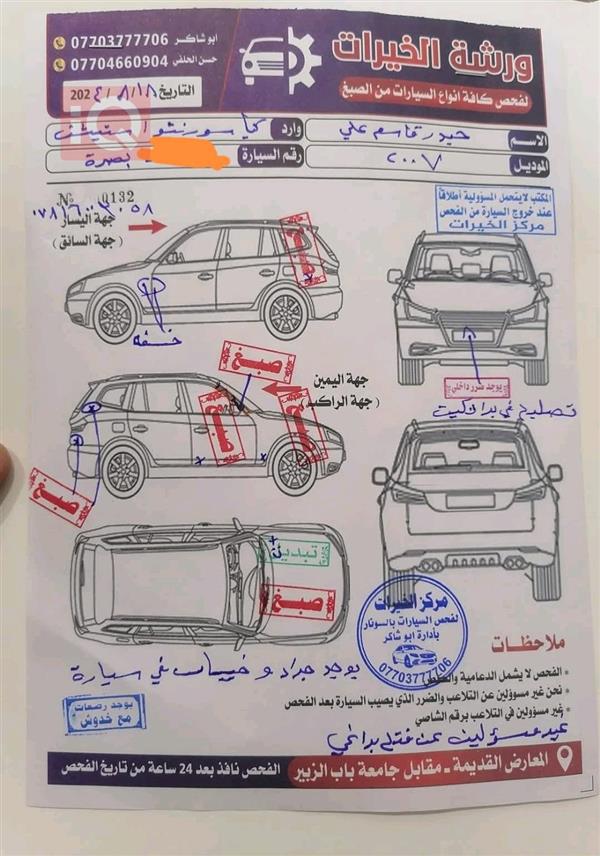 ورشة الخيرات
لفحص كافة انواع السيارات من الصبغ
ابو شاكر - 07703777706
حسن الحلفي - 07704660904
التاريخ ١٨/ ٨/ 202٤
iQ
الاسم حيدر قاسم علي وارد كيا سورنتو استيشن
الموديل ٢٠٠٧ رقم السيارة بصرة
№ 0132
المكتب لايتحمل المسؤولية أطلاقاً
عند خروج السيارة من الفحص
مركز الخيرات
جهة اليسار
(جهة السائق)
صبغ
خسفه
يوجد ضرر داخلي
تصليح في
جهة اليمين
(جهة الراكب)
صبغ
صبغ
صبغ
صبغ
تبديل
صبغ
مركز الخيرات
لفحص السيارات بالسونار
بأدارة ابو شاكر
07703777706
ملاحظات
الفحص لا يشمل الدعامية
نحن غير مسؤولين عن التلاعب والضرر الذي يصيب السيارة بعد الفحص
غير مسؤولين في التلاعب برقم الشاصي
يوجد و في سيارة
يوجد رصعات
مع خدوش
غير مسؤولين عن فتح براغي
المعارض القديمة - مقابل جامعة باب الزبير
الفحص نافذ بعد 24 ساعة من تاريخ الفحص